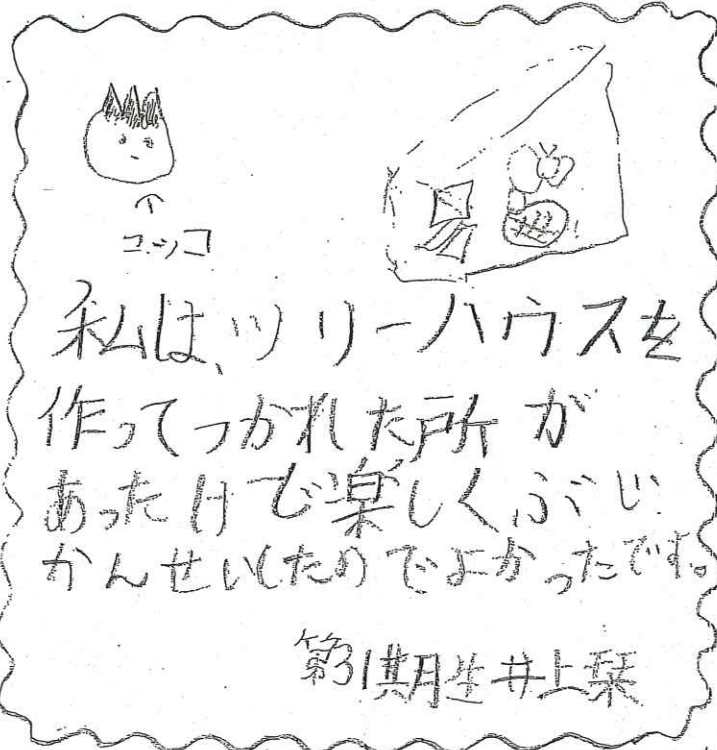 コッシコ
私は、ツリーハウスを
作ってつかれた所が
あったけど楽しく、ぶじ
かんせいしたのでよかったです。
第31期生井上栞